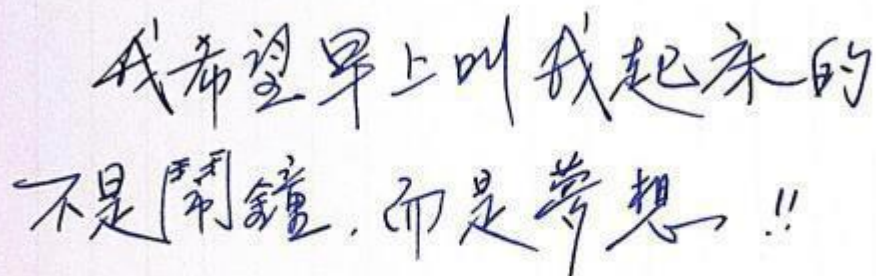 我希望早上叫我起床的
不是鬧鐘,而是夢想!!